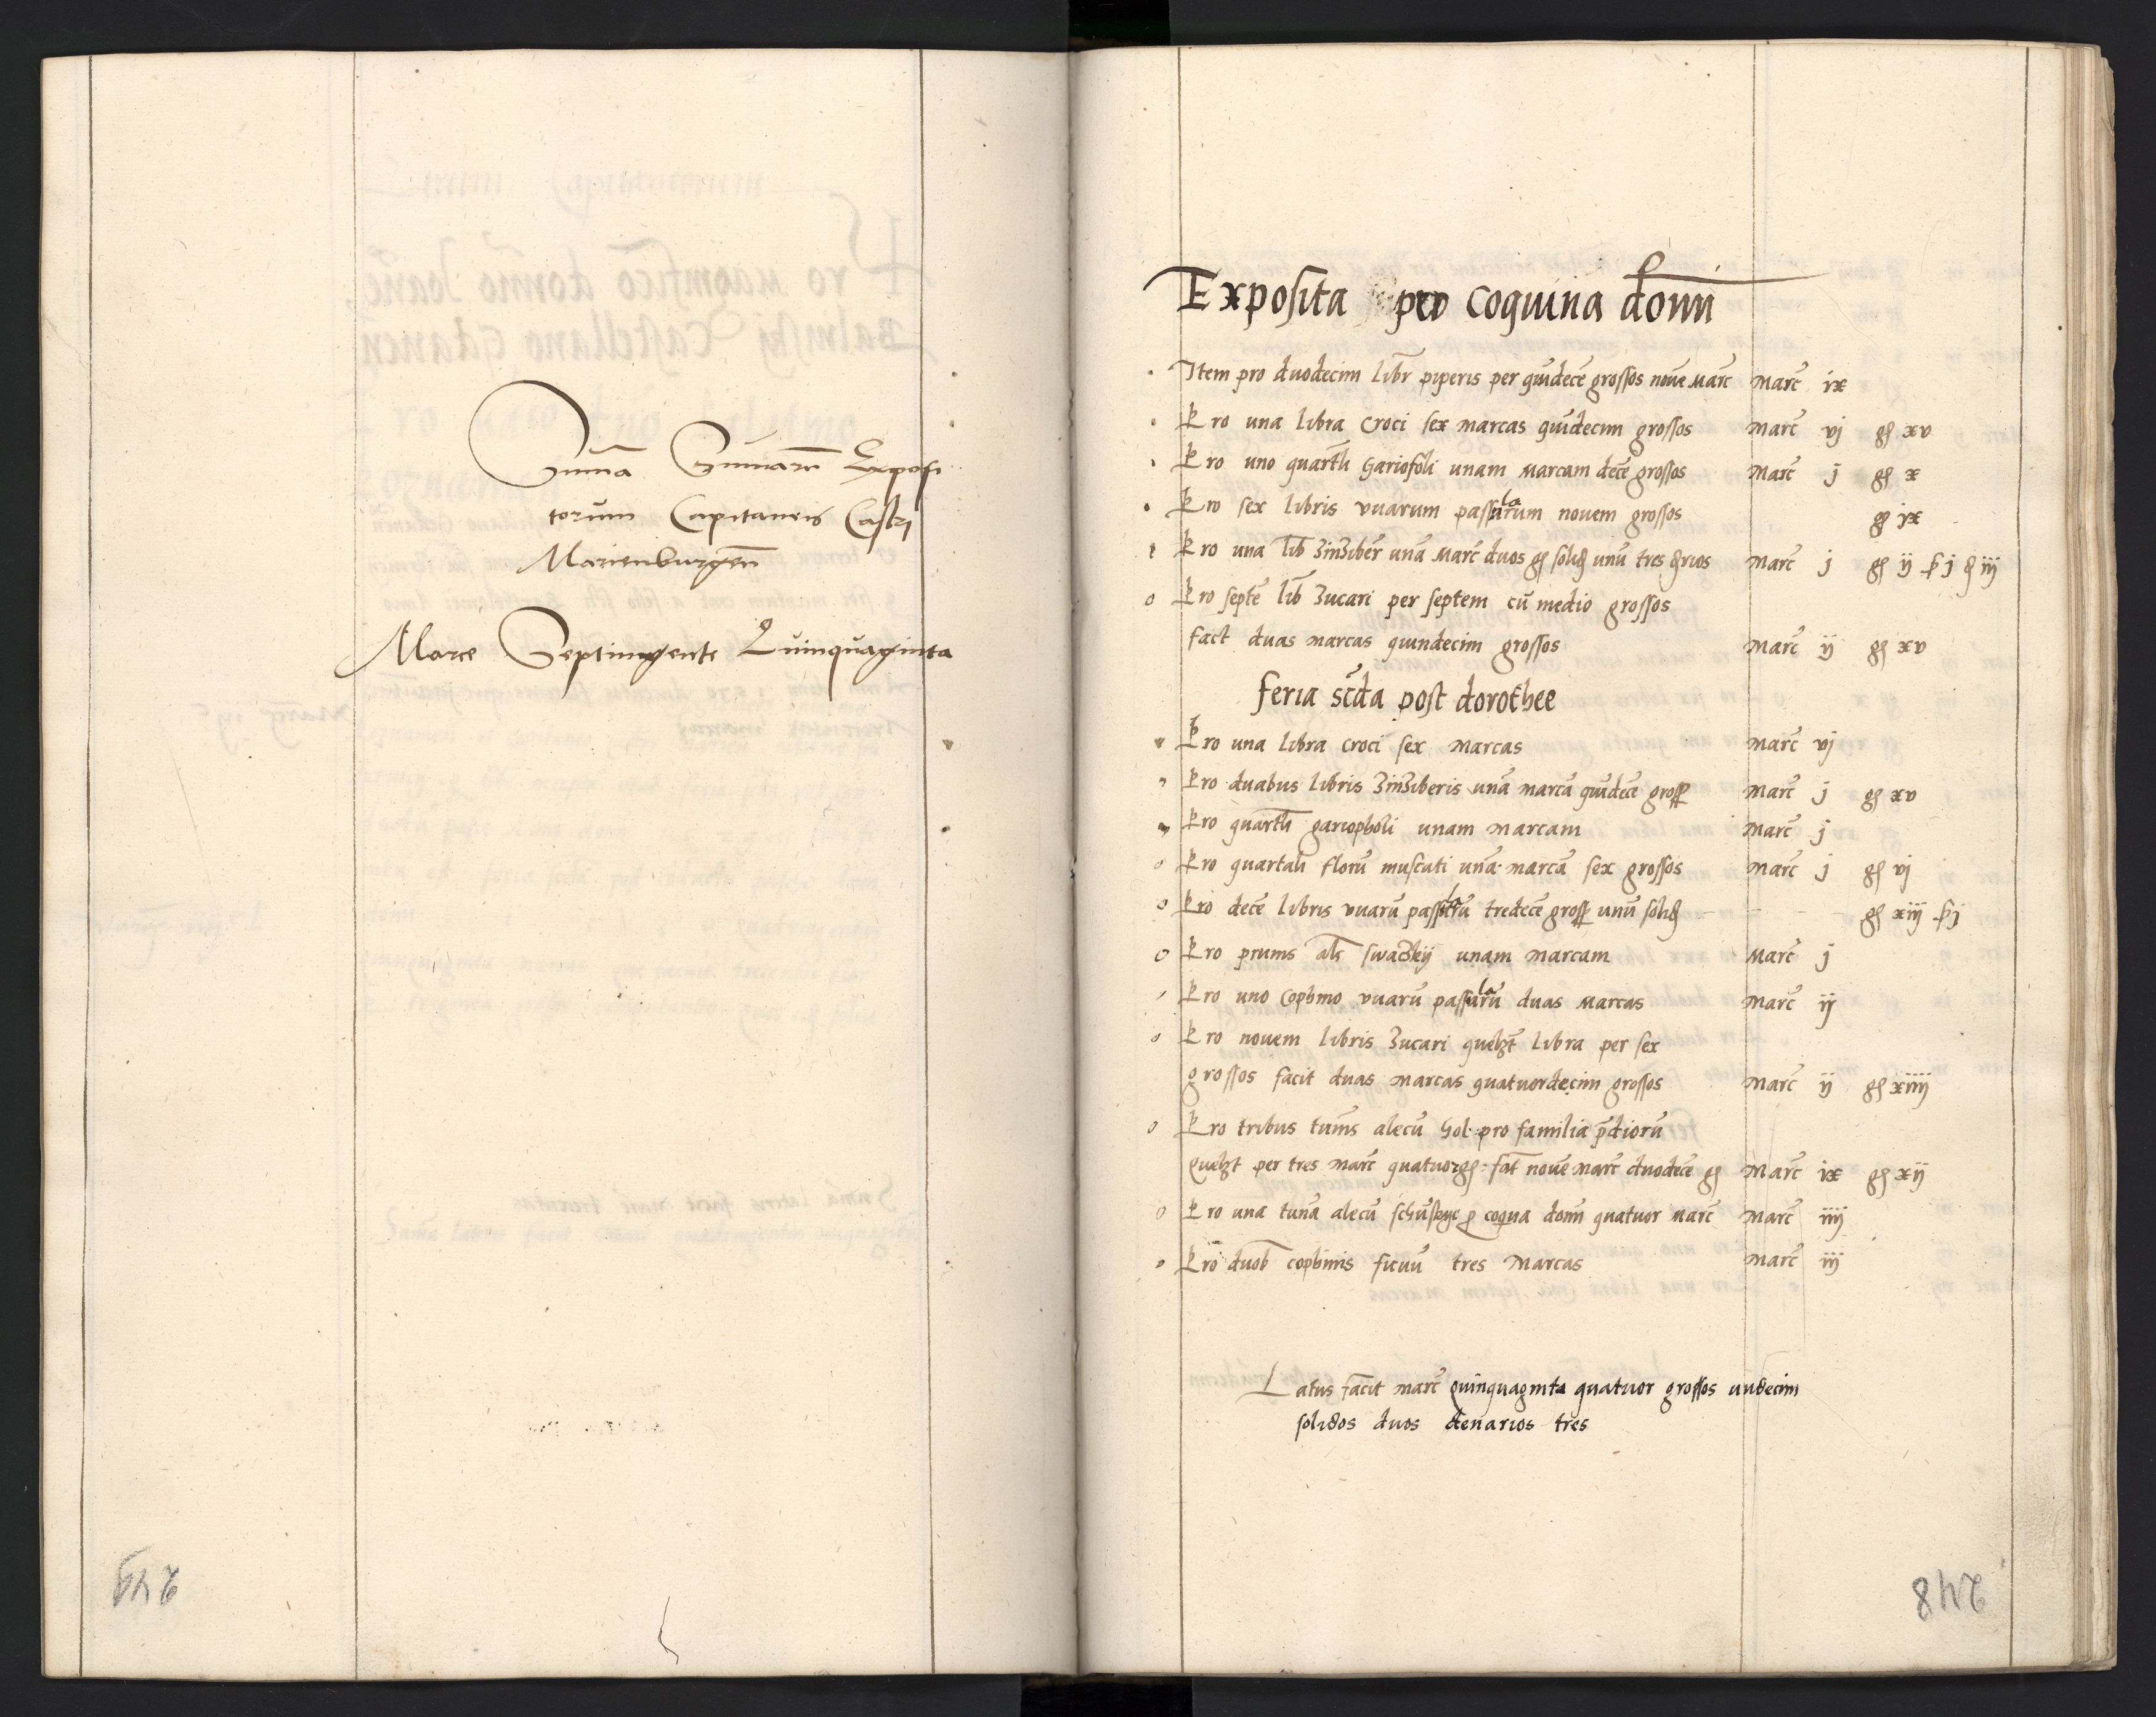 Summa Summarum Exposi
torum Capitaneis Castri
Marienburgen
Marce Septingente Quinquaginta
249
Exposita pro coquina domini
Item pro duodecim libr piperis per quidece grossos nove marc marc ix
Pro una libra croci sex marcas quidecim grossos marc vj gs xv
Pro uno quartli gariofoli unam marcam dece grossos marc j gs x
Pro sex libris vuarum passularum novem grossos gs ix
Pro una lib zinziber una marc duos gs solid unu tres denarios marc j gs ij s j d iij
Pro septe lib zucari per septem cu medio grossos
fact duas marcas quindecim grossos marc ij gs xv
feria scda post dorothee
Pro una libra croci sex marcas marc vj
Pro duabus libris zinziberis una marca quidece gross marc j gs xv
Pro quartli gariopholi unam marcam marc j
Pro quartali floru muscati una marca sex grossos marc j gs vj
Pro dece libris vuaru passularu tredece gross unu solid gs xiij s j
Pro prunis als swaczkij unam marcam marc j
Pro uno cophino vuaru passularu duas marcas marc ij
Pro novem libris zucari quelzt libra per sex
grossos facit duas marcas quatuordecim grossos marc ij gs xiiij
Pro tribus tunis alecu hol pro familia pdioru
quelzt per tres marc quatuor gs fat nove marc duodece gs marc ix gs xij
Pro una tuna alecu p coquina domini quatuor marc marc iiij
Pro duob cophinis ficuu tres marcas marc iij
Latus facit marc quinquaginta quatuor grossos undecim
solidos duos denarios tres
248